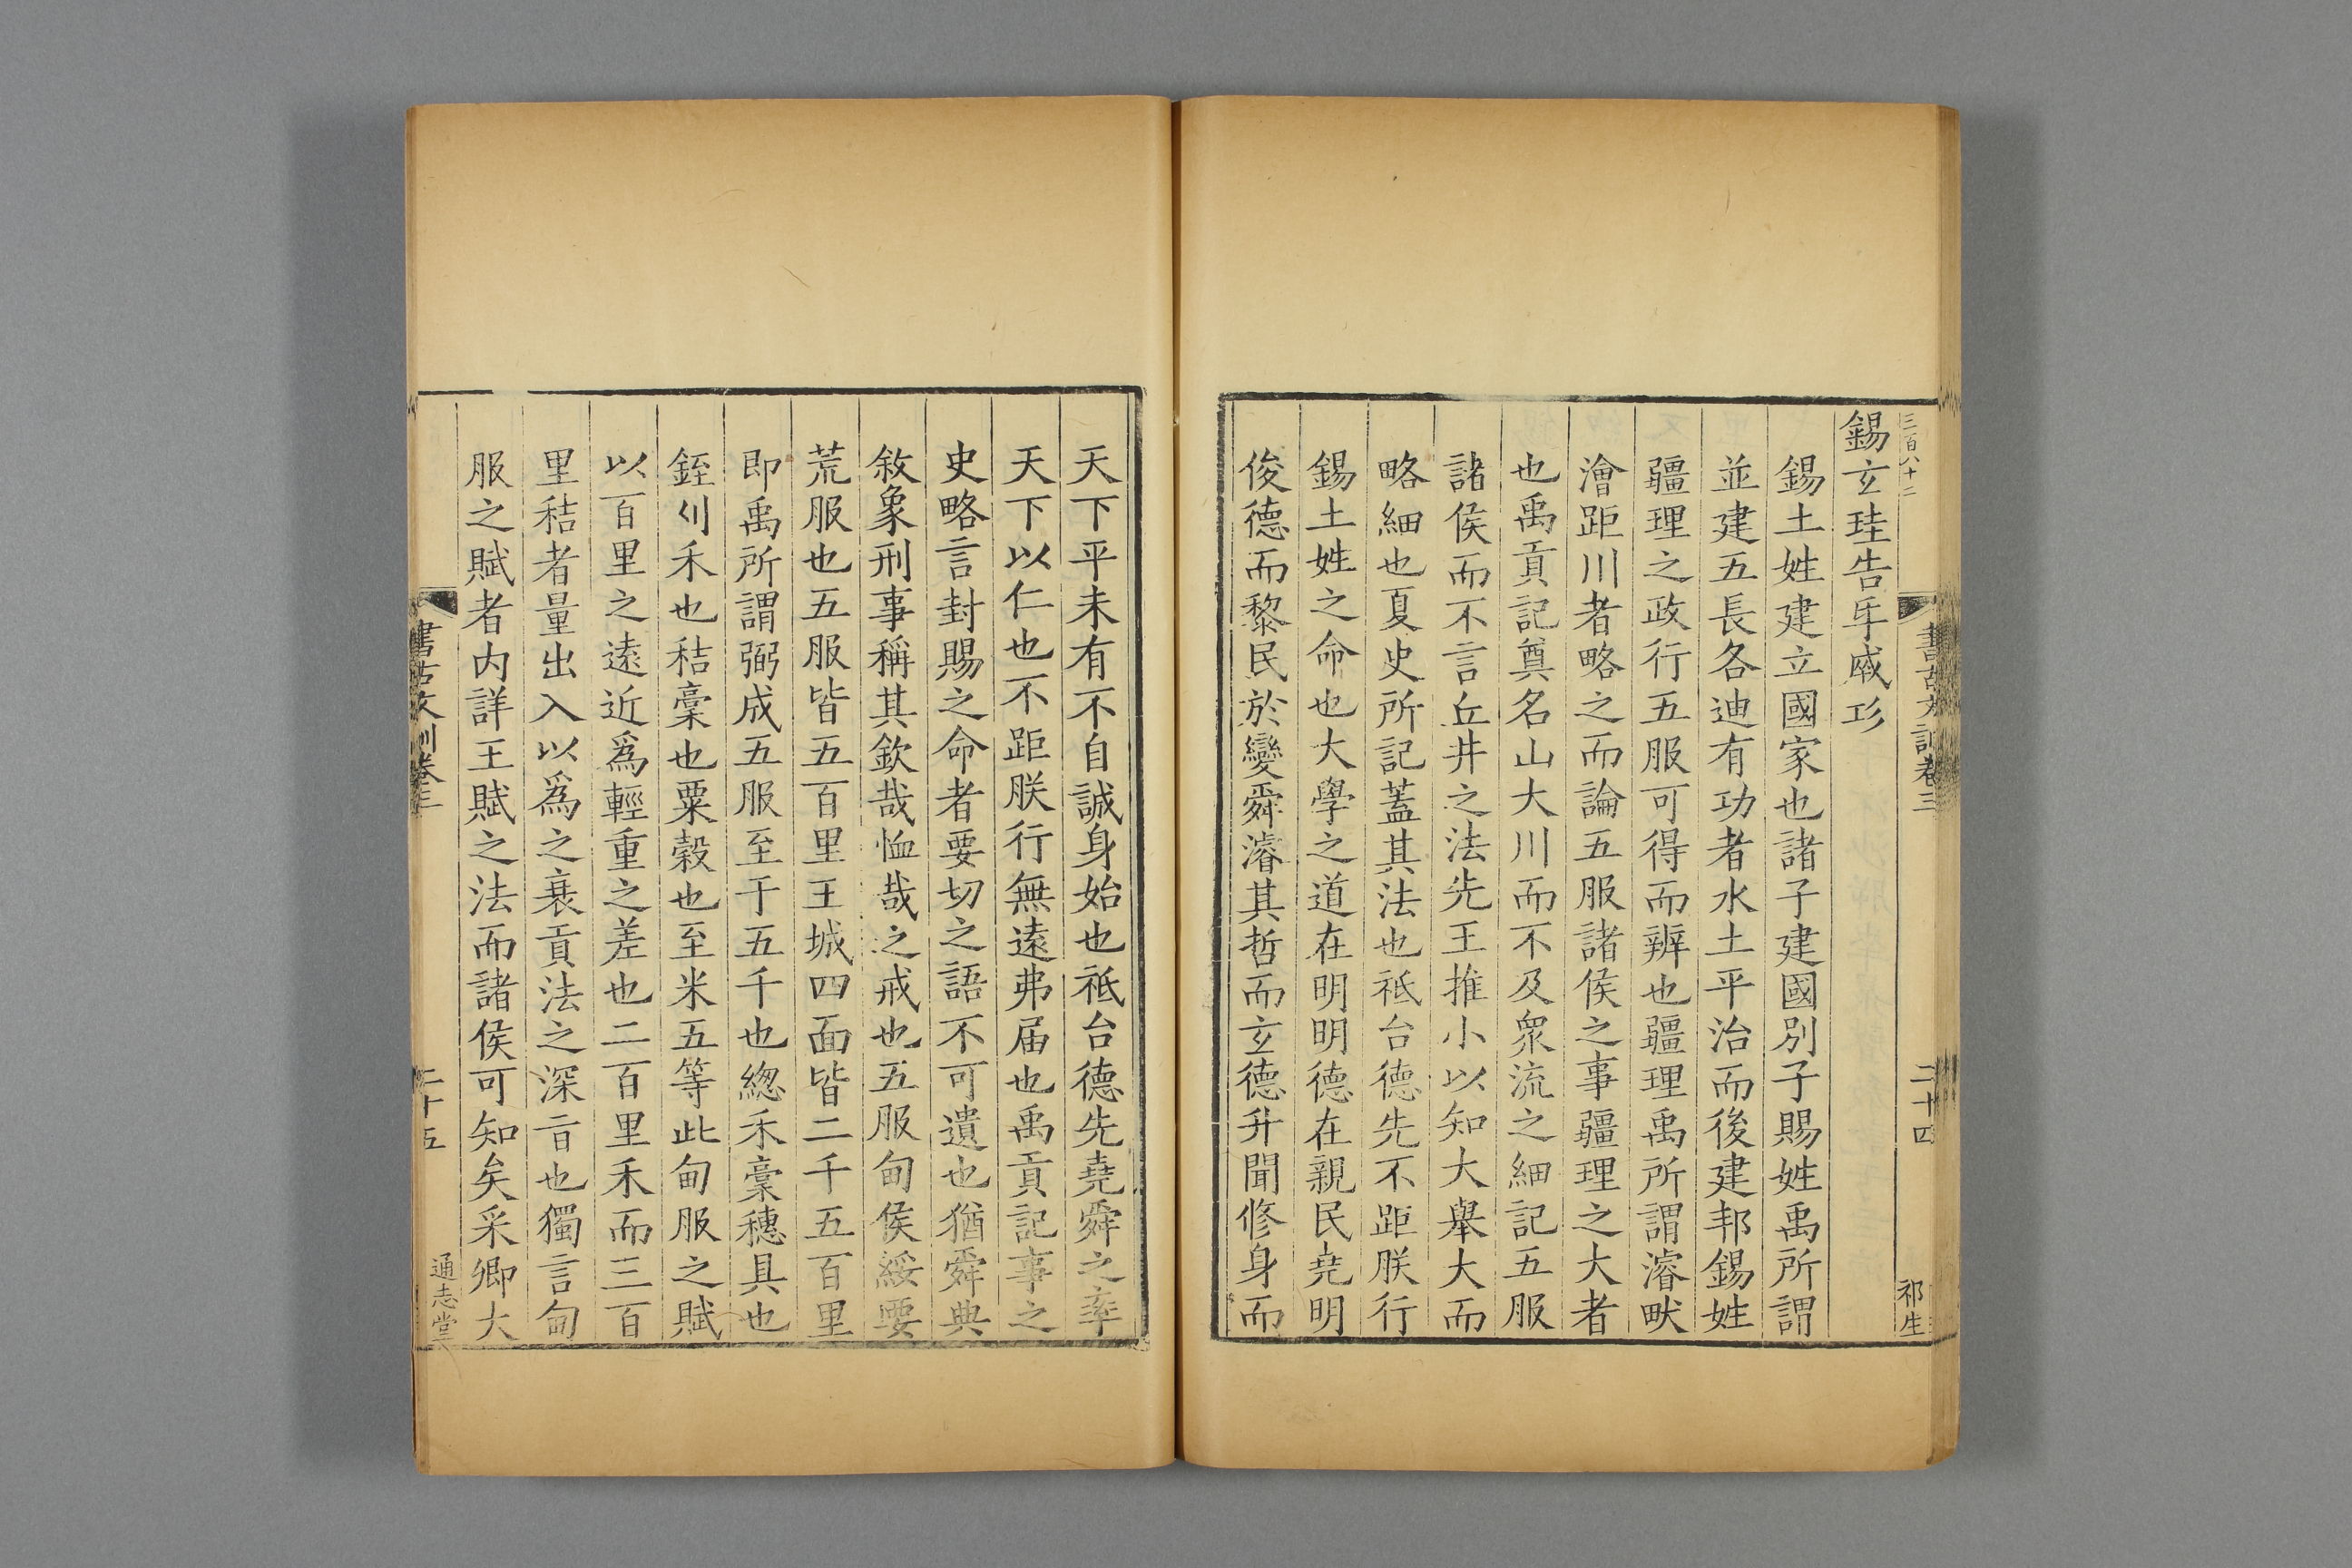 三百八十二
書古文訓卷三
二十四
祁生
錫玄珪告𠂹戚㓛
錫土姓建立國家也諸子建國別子賜姓禹所謂
並建五長各迪有功者水土平治而後建邦錫姓
疆理之政行五服可得而辨也疆理禹所謂濬畎
澮距川者略之而論五服諸侯之事疆理之大者
也禹貢記奠名山大川而不及衆流之細記五服
諸侯而不言丘井之法先王推小以知大舉大而
略細也夏史所記蓋其法也祗台德先不距朕行
錫土姓之命也大學之道在明明德在親民堯明
俊德而黎民於變舜濬其哲而玄德升聞修身而
天下平未有不自誠身始也祗台德先堯舜之率
天下以仁也不距朕行無遠弗届也禹貢記事之
史略言封賜之命者要切之語不可遺也猶舜典
敘象刑事稱其欽哉恤哉之戒也五服甸侯綏要
荒服也五服皆五百里王城四面皆二千五百里
即禹所謂弼成五服至于五千也緫禾稾穗具也
銍刈禾也秸稾也粟穀也至米五等此甸服之賦
以百里之遠近爲輕重之差也二百里禾而三百
里秸者量出入以爲之衰貢法之深㫖也獨言甸
服之賦者内詳王賦之法而諸侯可知矣采卿大
書古文訓卷三
二十五
通志堂